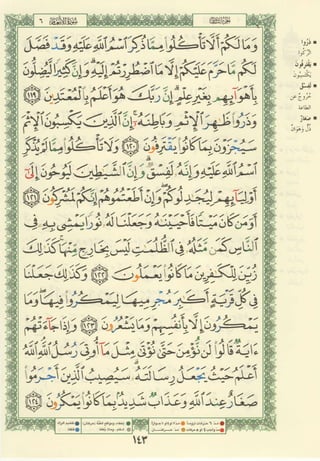 سورة الأنعام ٦
وَمَا لَكُمْ أَلَّا تَأْكُلُوا۟ مِمَّا ذُكِرَ ٱسْمُ ٱللَّهِ عَلَيْهِ وَقَدْ فَصَّلَ
لَكُم مَّا حَرَّمَ عَلَيْكُمْ إِلَّا مَا ٱضْطُرِرْتُمْ إِلَيْهِ ۗ وَإِنَّ كَثِيرًا لَّيُضِلُّونَ
بِأَهْوَآئِهِم بِغَيْرِ عِلْمٍ ۗ إِنَّ رَبَّكَ هُوَ أَعْلَمُ بِٱلْمُعْتَدِينَ ١١٩
وَذَرُوا۟ ظَٰهِرَ ٱلْإِثْمِ وَبَاطِنَهُۥٓ ۚ إِنَّ ٱلَّذِينَ يَكْسِبُونَ ٱلْإِثْمَ
سَيُجْزَوْنَ بِمَا كَانُوا۟ يَقْتَرِفُونَ ١٢٠ وَلَا تَأْكُلُوا۟ مِمَّا لَمْ يُذْكَرِ
ٱسْمُ ٱللَّهِ عَلَيْهِ وَإِنَّهُۥ لَفِسْقٌ ۗ وَإِنَّ ٱلشَّيَٰطِينَ لَيُوحُونَ إِلَىٰٓ
أَوْلِيَآئِهِمْ لِيُجَٰدِلُوكُمْ ۖ وَإِنْ أَطَعْتُمُوهُمْ إِنَّكُمْ لَمُشْرِكُونَ ١٢١
أَوَمَن كَانَ مَيْتًا فَأَحْيَيْنَٰهُ وَجَعَلْنَا لَهُۥ نُورًا يَمْشِى بِهِۦ فِى
ٱلنَّاسِ كَمَن مَّثَلُهُۥ فِى ٱلظُّلُمَٰتِ لَيْسَ بِخَارِجٍ مِّنْهَا ۚ كَذَٰلِكَ
زُيِّنَ لِلْكَٰفِرِينَ مَا كَانُوا۟ يَعْمَلُونَ ١٢٢ وَكَذَٰلِكَ جَعَلْنَا
فِى كُلِّ قَرْيَةٍ أَكَٰبِرَ مُجْرِمِيهَا لِيَمْكُرُوا۟ فِيهَا ۖ وَمَا
يَمْكُرُونَ إِلَّا بِأَنفُسِهِمْ وَمَا يَشْعُرُونَ ١٢٣ وَإِذَا جَآءَتْهُمْ
ءَايَةٌ قَالُوا۟ لَن نُّؤْمِنَ حَتَّىٰ نُؤْتَىٰ مِثْلَ مَآ أُوتِىَ رُسُلُ ٱللَّهِ ۘ ٱللَّهُ
أَعْلَمُ حَيْثُ يَجْعَلُ رِسَالَتَهُۥ ۗ سَيُصِيبُ ٱلَّذِينَ أَجْرَمُوا۟
صَغَارٌ عِندَ ٱللَّهِ وَعَذَابٌ شَدِيدٌۢ بِمَا كَانُوا۟ يَمْكُرُونَ ١٢٤
١٤٣